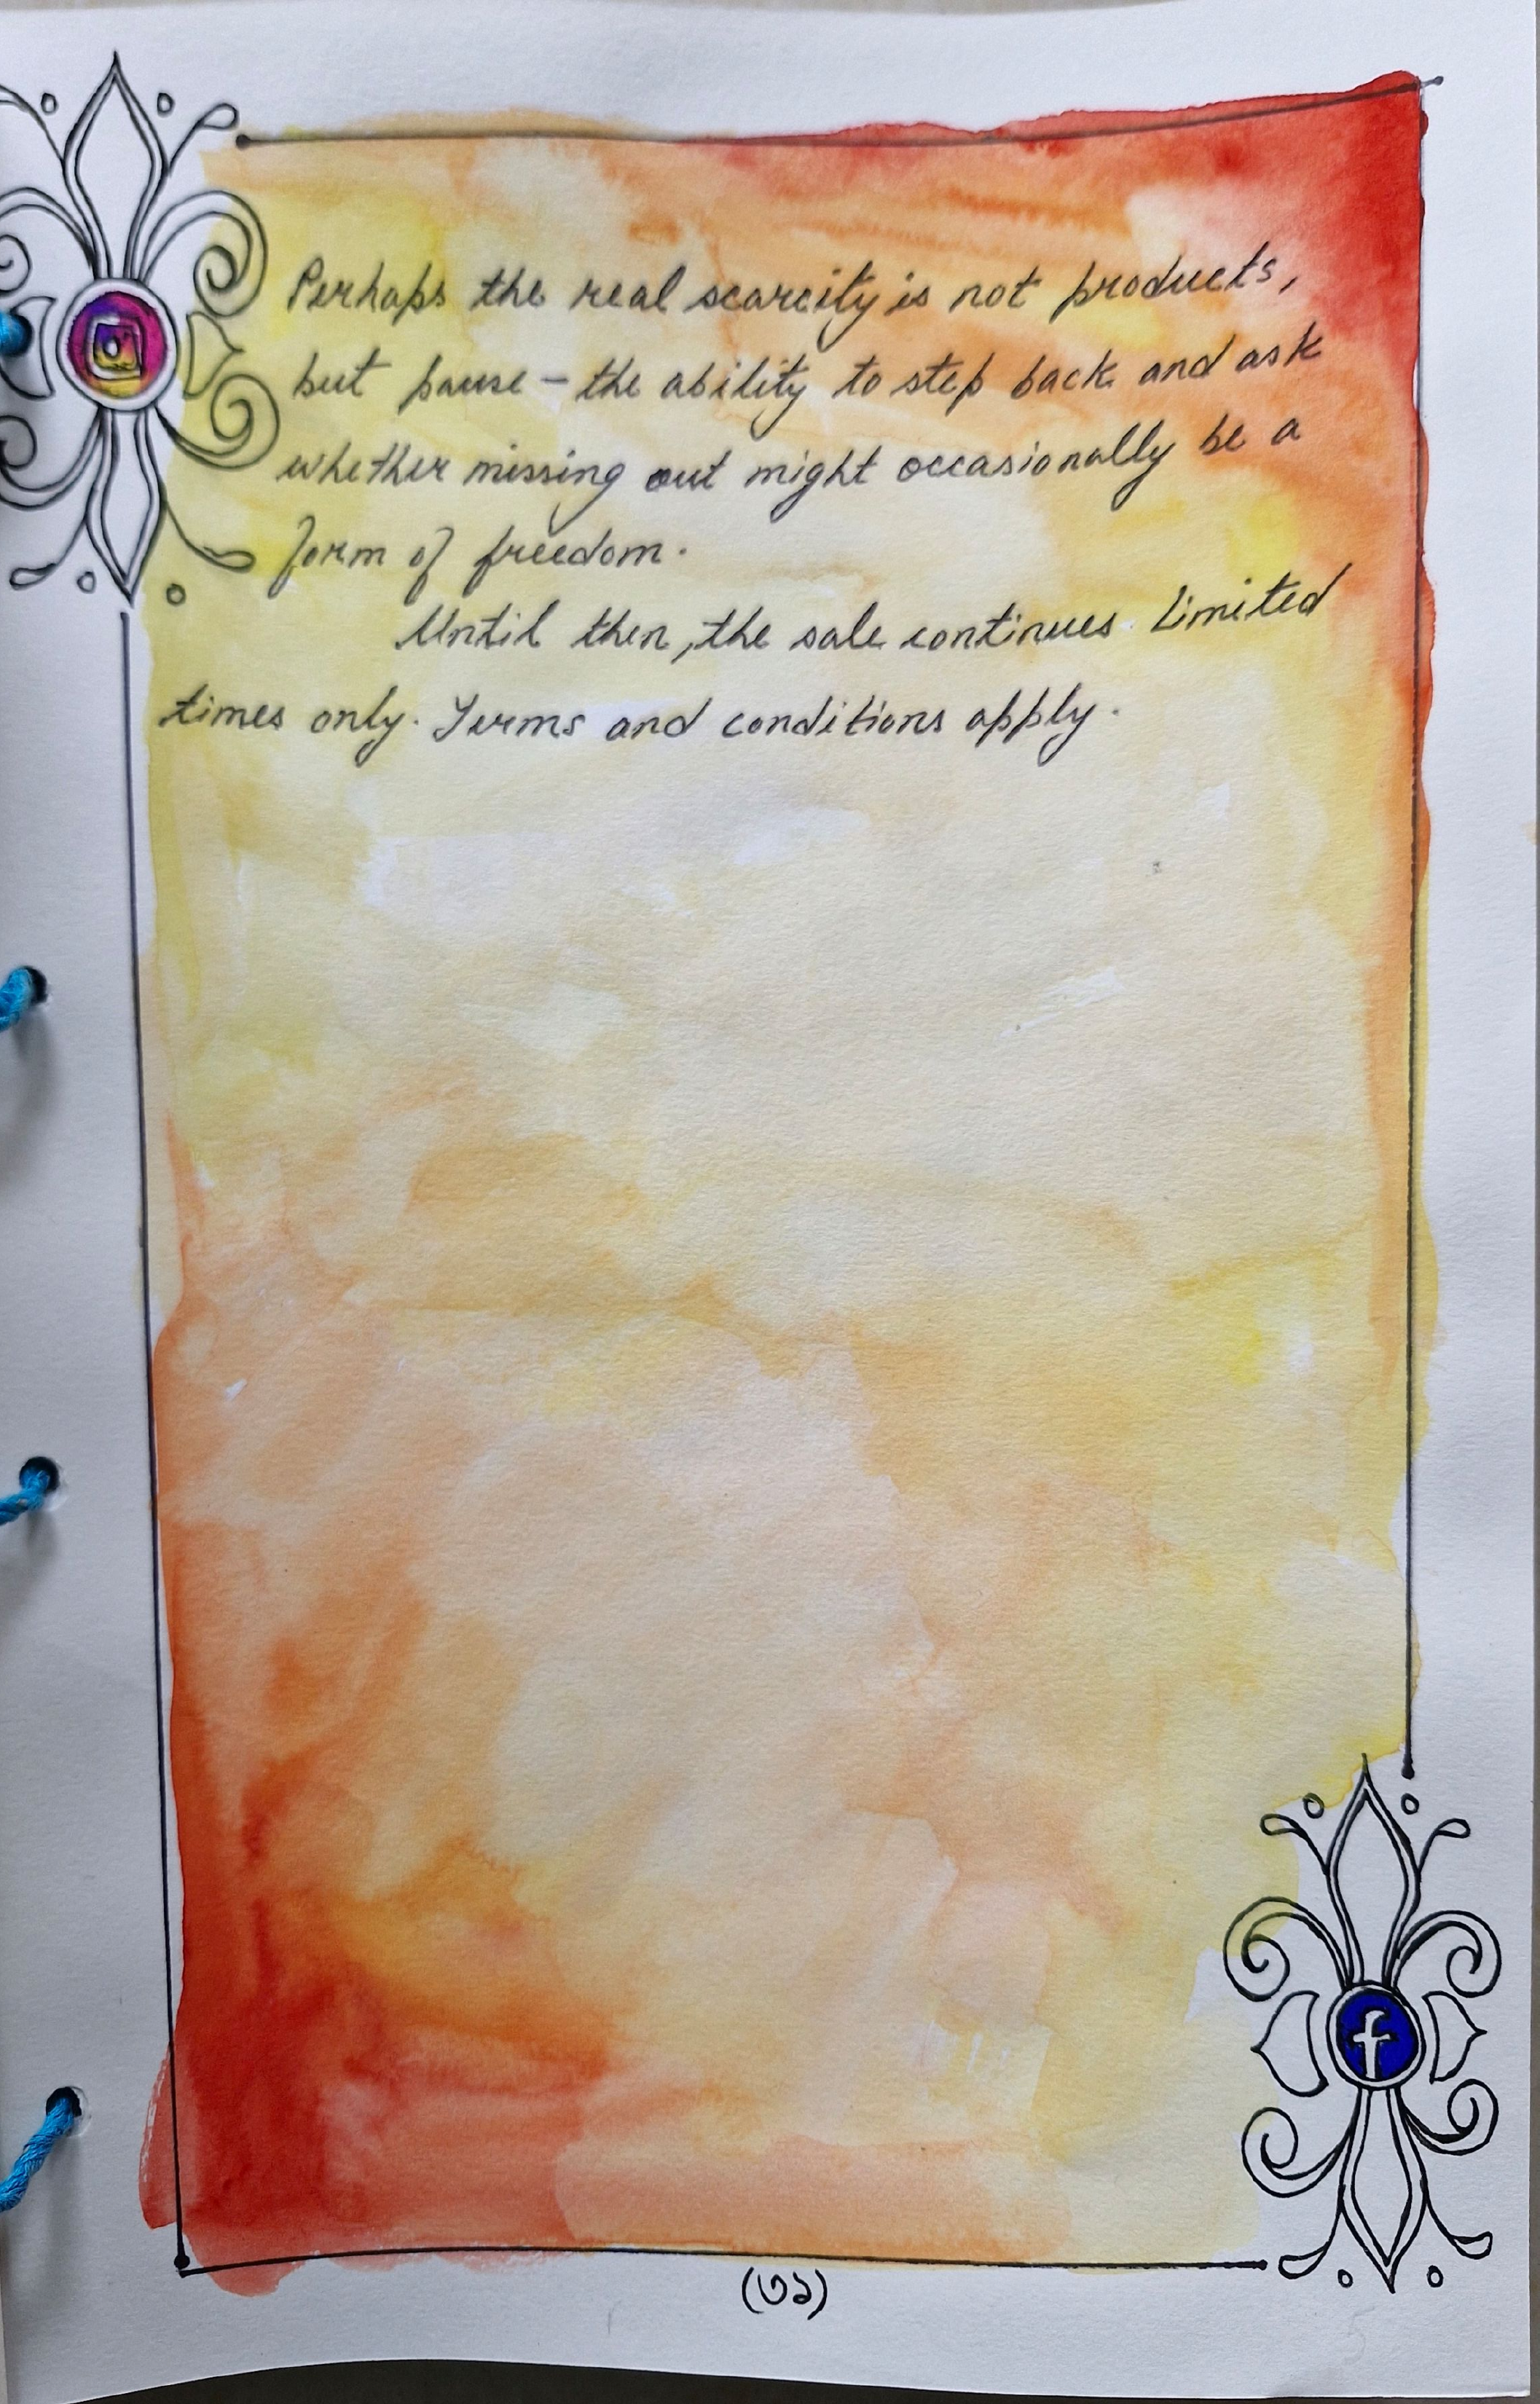 Perhaps the real scarcity is not products,
but pause – the ability to step back and ask
whether missing out might occasionally be a
form of freedom.
Until then, the sale continues. Limited
times only. Terms and conditions apply.
f
(৩১)